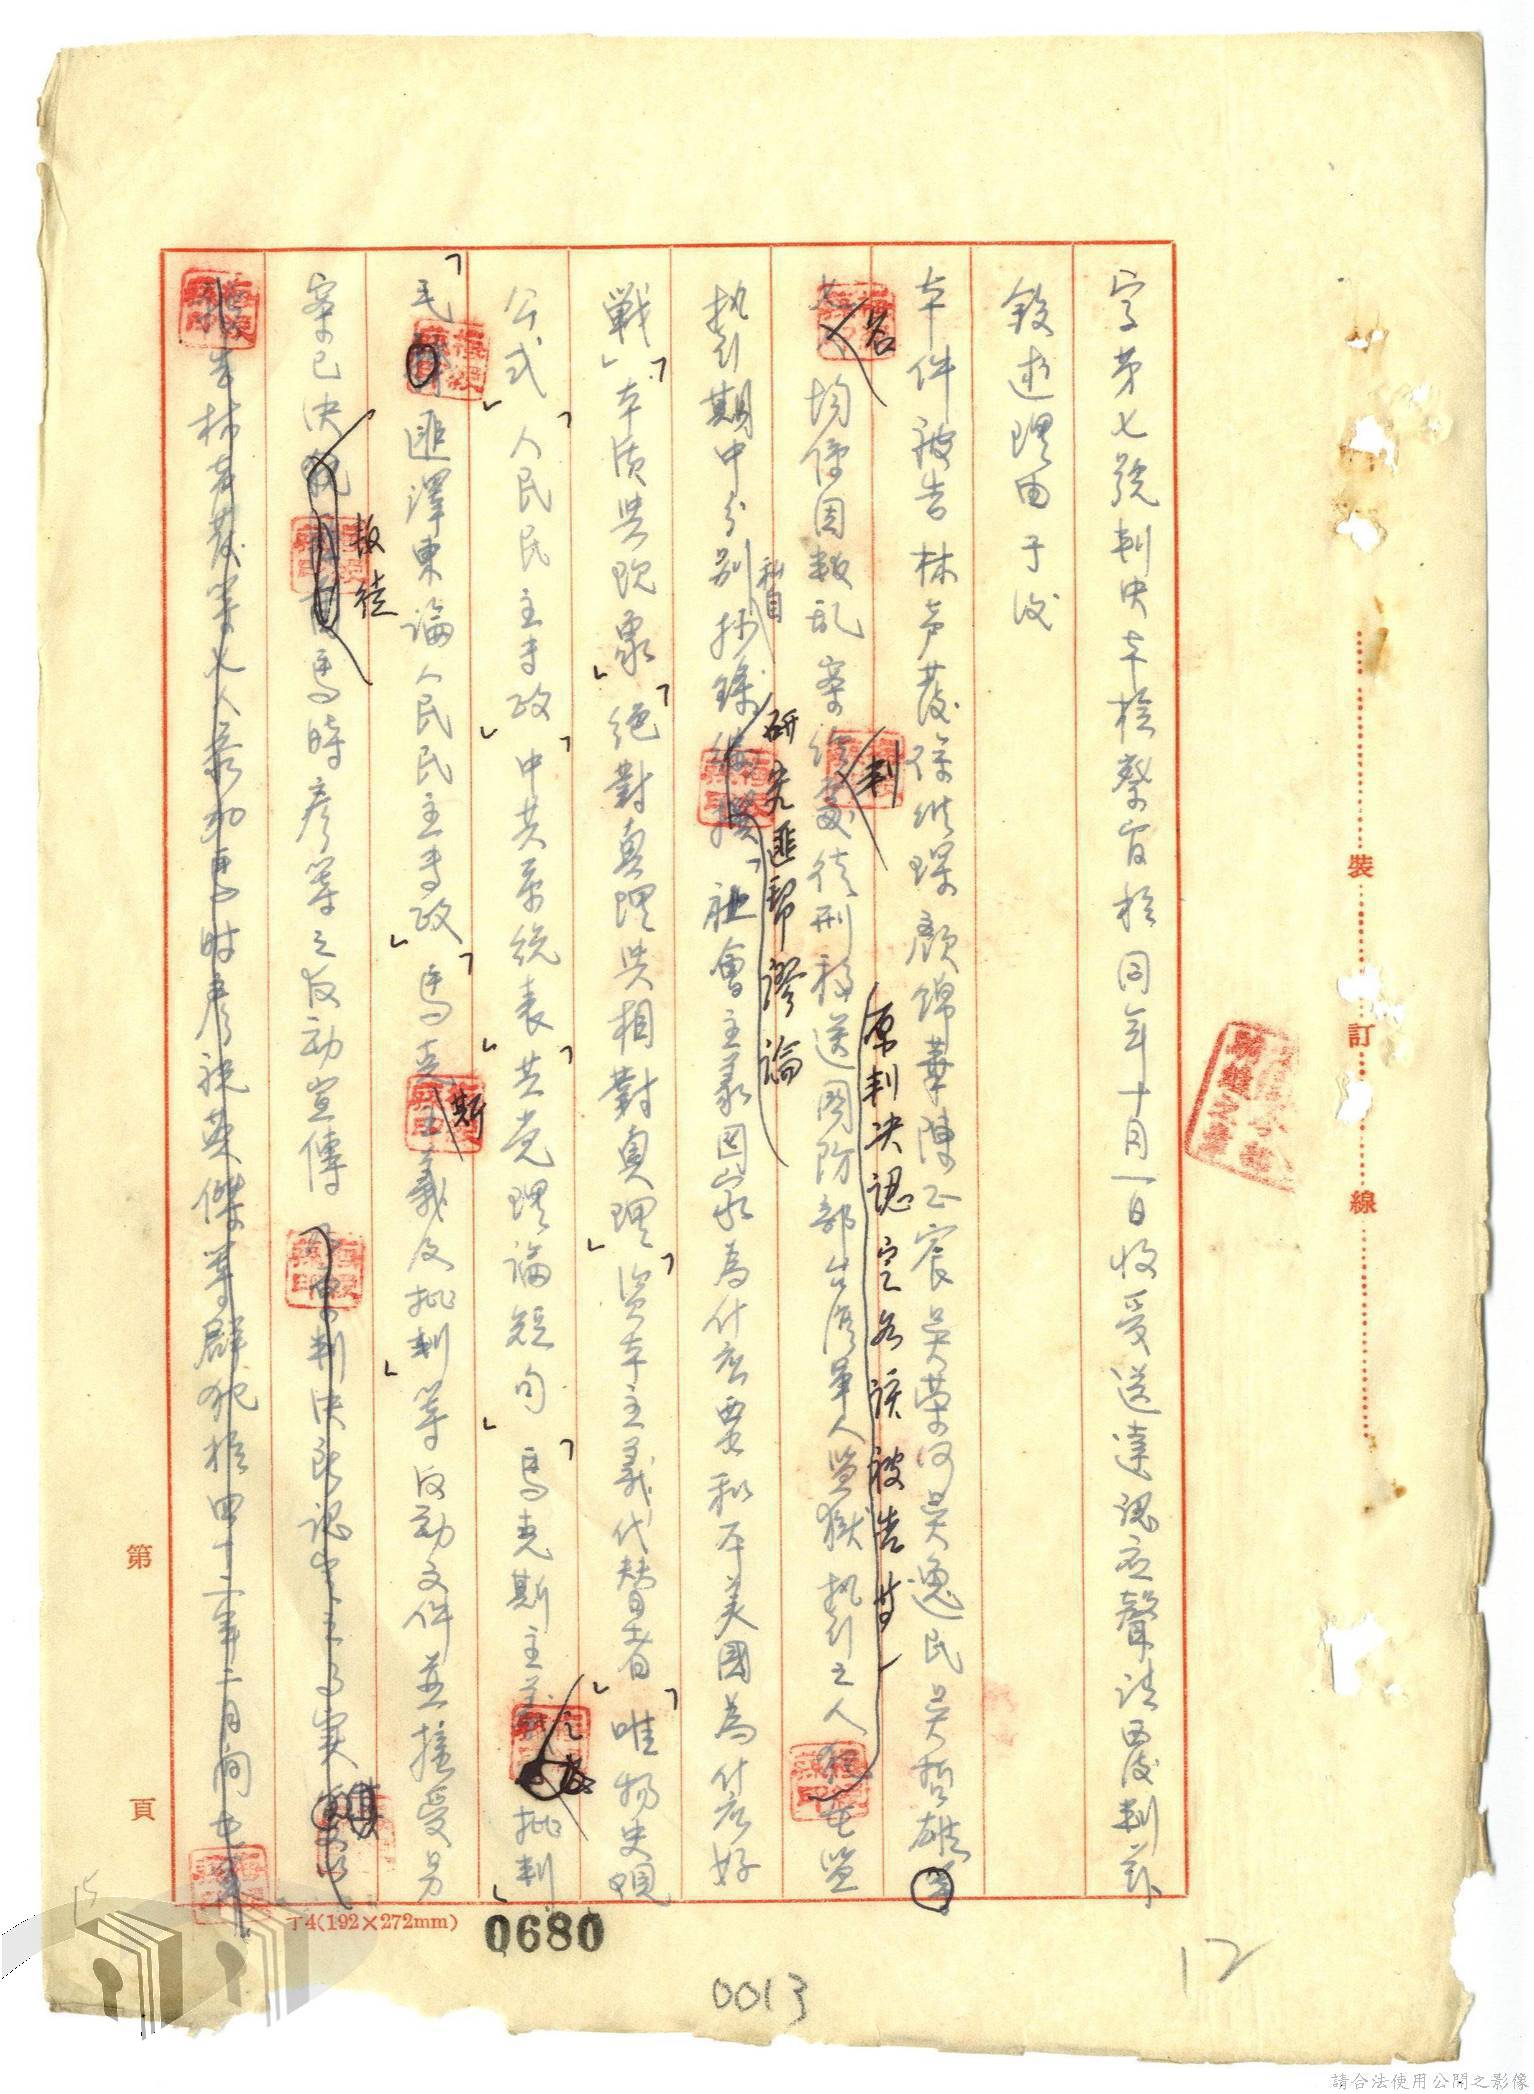 字第七號判決本檢察官於同年十月一日收受送達認應聲請覆判茲
敘述理由于後
本件被告林声發徐淮琛顏錦華陳正宸吳榮河吳逸民吳哲雄等
名均係因叛乱案經判處徒刑移送國防部台灣軍人監獄執行之人犯在監
原判決認定各該被告等
執行期中分别抄錄編撰「社會主義囯家為什麽要和平美國為什麽好
私自
研究匪幫謬論
戰」「本质與現象」「絕對真理與相對真理」「資本主義代替者」「唯物史观
公式」「人民民主專政」「中共系統表」「共党理論短句」「馬克斯主義之批判」
「毛匪澤東論人民民主專政」「馬克斯主義及批判」等反動文件並接受另
案已決叛徒馬時彥等之反動宣傳
判決既認
事實
林声發等七人
馬時彥祝英傑等群犯於四十二年二月間
裝
訂
線
第
頁
T4(192×272mm)
0680
0013
12
15
請合法使用公開之影像